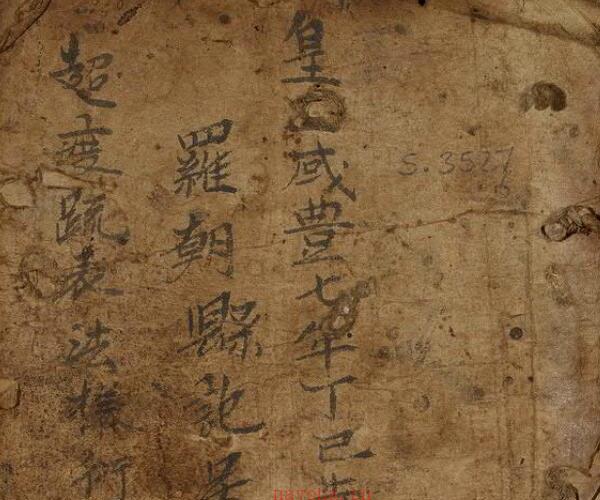 S.3527
皇咸豐七年丁巳
羅朝縣記
超度疏表法樣